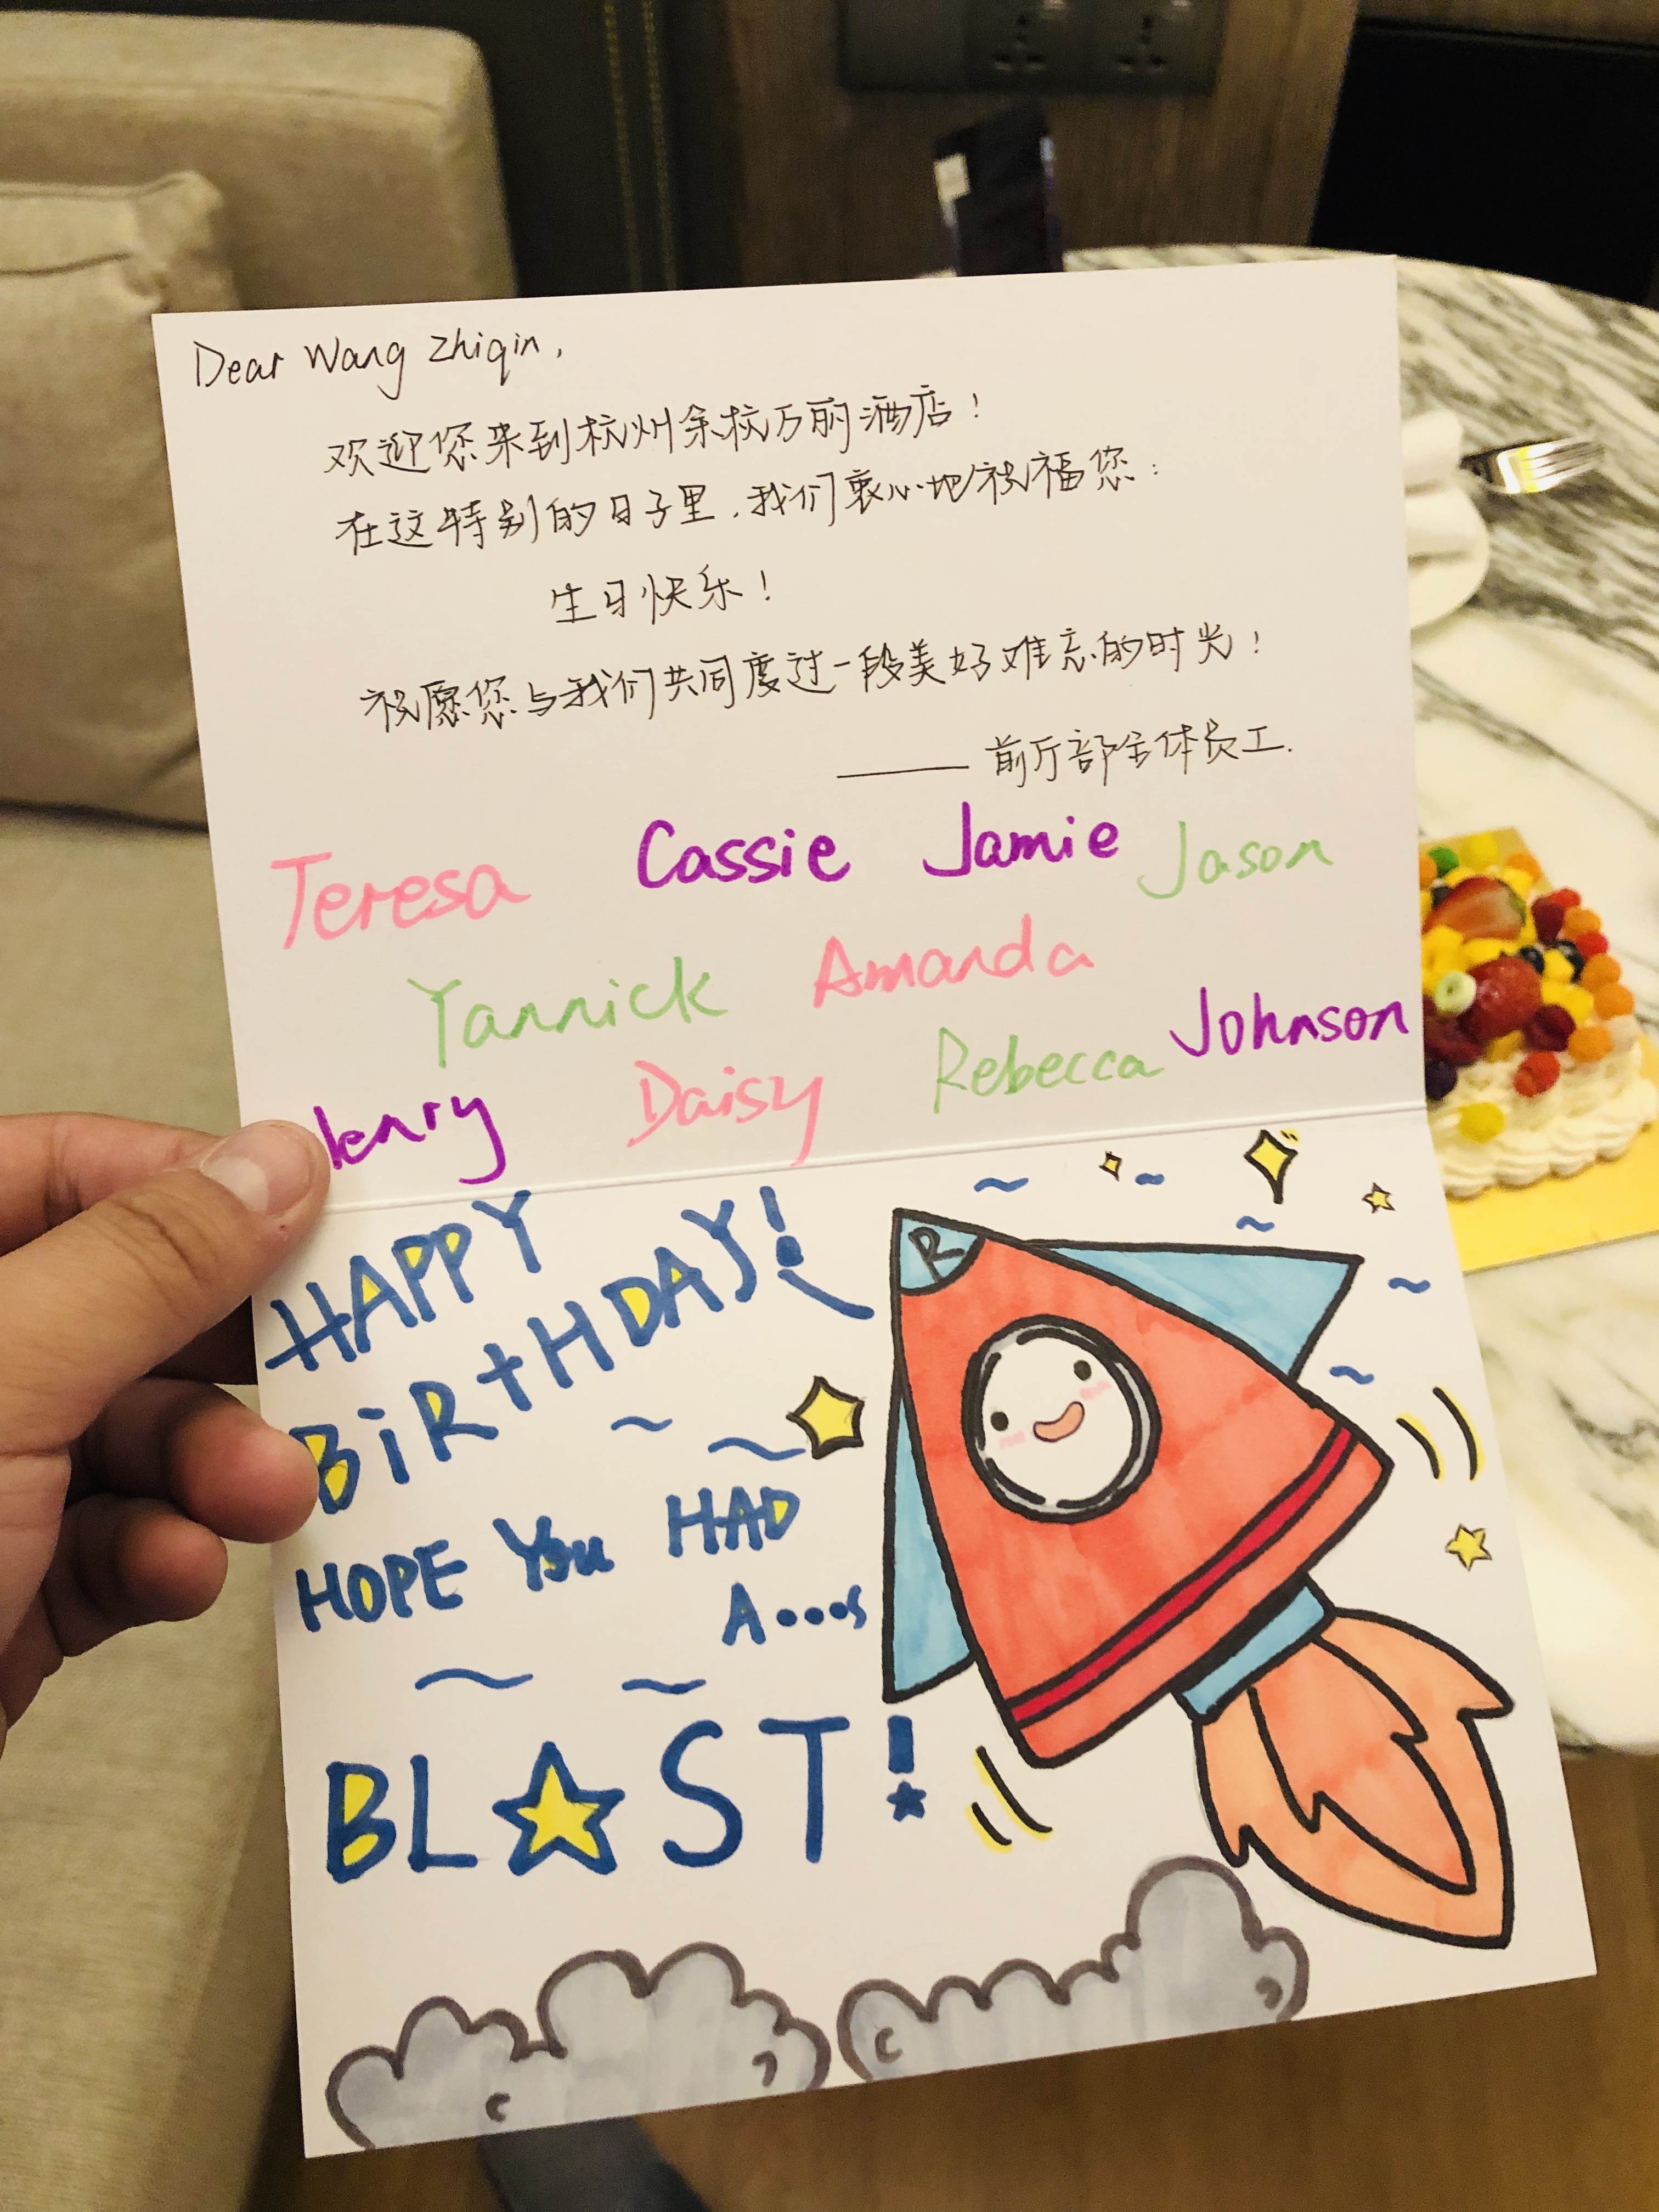 Dear Wang Zhiqin,
欢迎您来到杭州余杭万丽酒店!
在这特别的日子里,我们衷心地祝福您:
生日快乐!
祝愿您与我们共同度过一段美好难忘的时光!
—— 前厅部全体员工.
Teresa Cassie Jamie Jason
Yannick Amanda
Johnson
Henry Daisy Rebecca
HAPPY
BiRtHDAY!
R
HOPE You HAD
A....s
BL★ST!